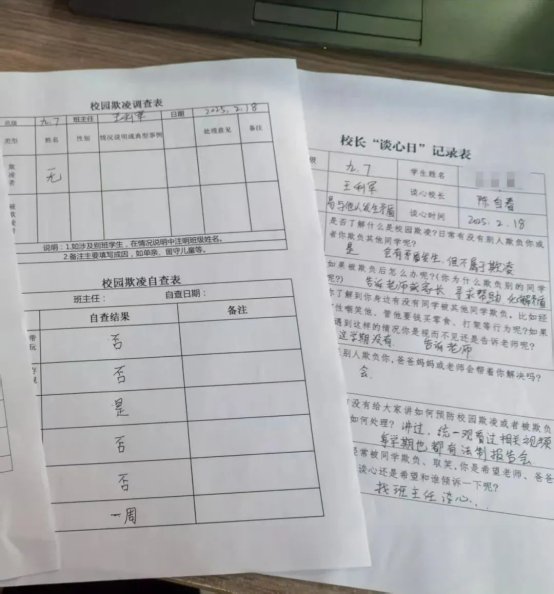 校园欺凌调查表
班级 九.7 班主任 王利军 日期 2025.2.18
类型 姓名 性别 情况说明或典型事例 处理意见 备注
欺凌者 无
被欺凌者
说明：1.如涉及别班学生，在情况说明中注明班级姓名。
2.备注主要填写成因，如单亲、留守儿童等。
校园欺凌自查表
班主任： 自查日期：
自查结果 备注
否
否
是
否
否
一周
校长“谈心日”记录表
级 九.7 学生姓名
王利军 谈心校长 陈自春
易与他人发生矛盾 谈心时间 2025.2.18
是否了解什么是校园欺凌？日常有没有别人欺负你或
者你欺负其他同学呢？
是 会有矛盾发生，但不属于欺凌
如果被欺负后怎么办呢？（你为什么欺负别的同学
呢？） 告诉老师或家长 寻求帮助 化解矛盾
你了解到你身边有没有同学被其他同学欺负，比如经
性嘲笑他、替他要钱买零食、打架等行为呢？如果
遇到这样的情况你是视而不见还是告诉老师呢？
这学期没有 告诉老师
别人欺负你，爸爸妈妈或老师会帮着你解决吗？
会
没有给大家讲如何预防校园欺凌或者被欺负
如何处理？ 讲过，统一观看过相关视频
每学期也都有法制报告会
经常被同学欺负、取笑，你是希望老师、爸爸
谈心还是希望和谁倾诉一下呢？
找班主任谈心